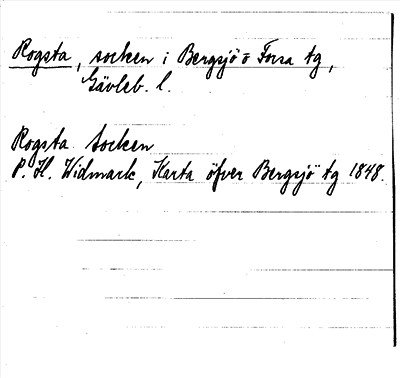 Rogsta, socken i Bergsjö o Forsa tg,
Gävleb. l.
Rogsta Socken
P. H. Widmark, Karta öfver Bergsjö tg 1848.